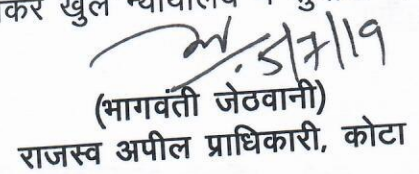 कर खुले न्यायालय
5/7/19
(भागवंती जेठवानी)
राजस्व अपील प्राधिकारी, कोटा